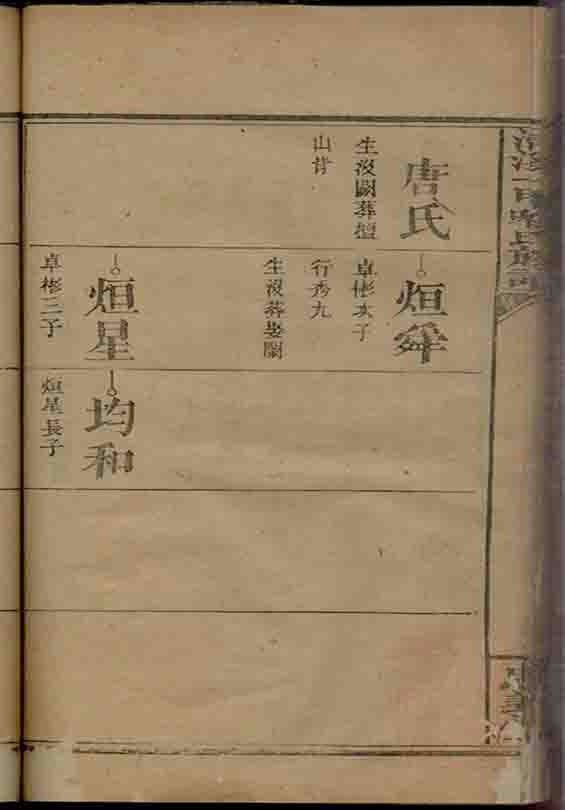 唐氏
生沒闕葬壇
山背
烜舜
卓彬次子
行秀九
生沒葬娶闕
烜星
卓彬三子
均和
烜星長子